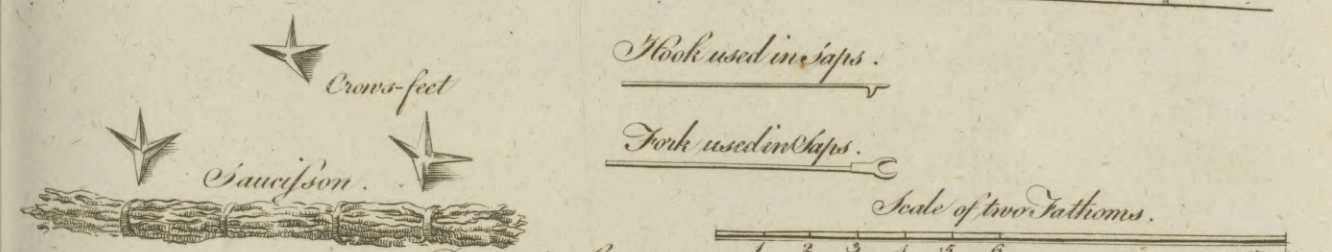 Crows-feet
Sauciſson.
Hook used in Saps.
Fork used in Saps.
Scale of two Fathoms.
1 2 3 4 5 6